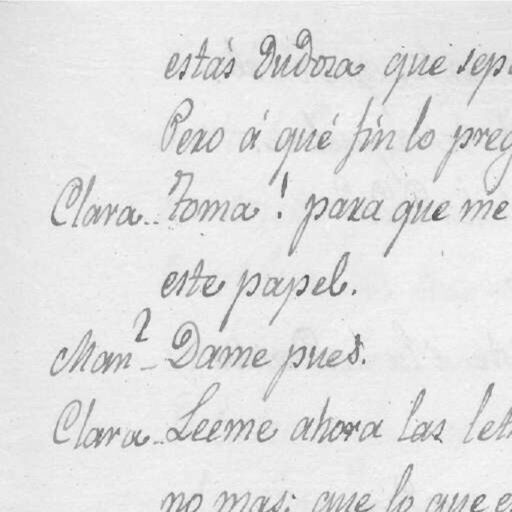 estás dudoza que sepa
Pero á qué fin lo preg
Clara.. Toma! para que me
este papel.
Man.l - Dame pues.
Clara.. Leeme ahora las let
no mas; que lo que es